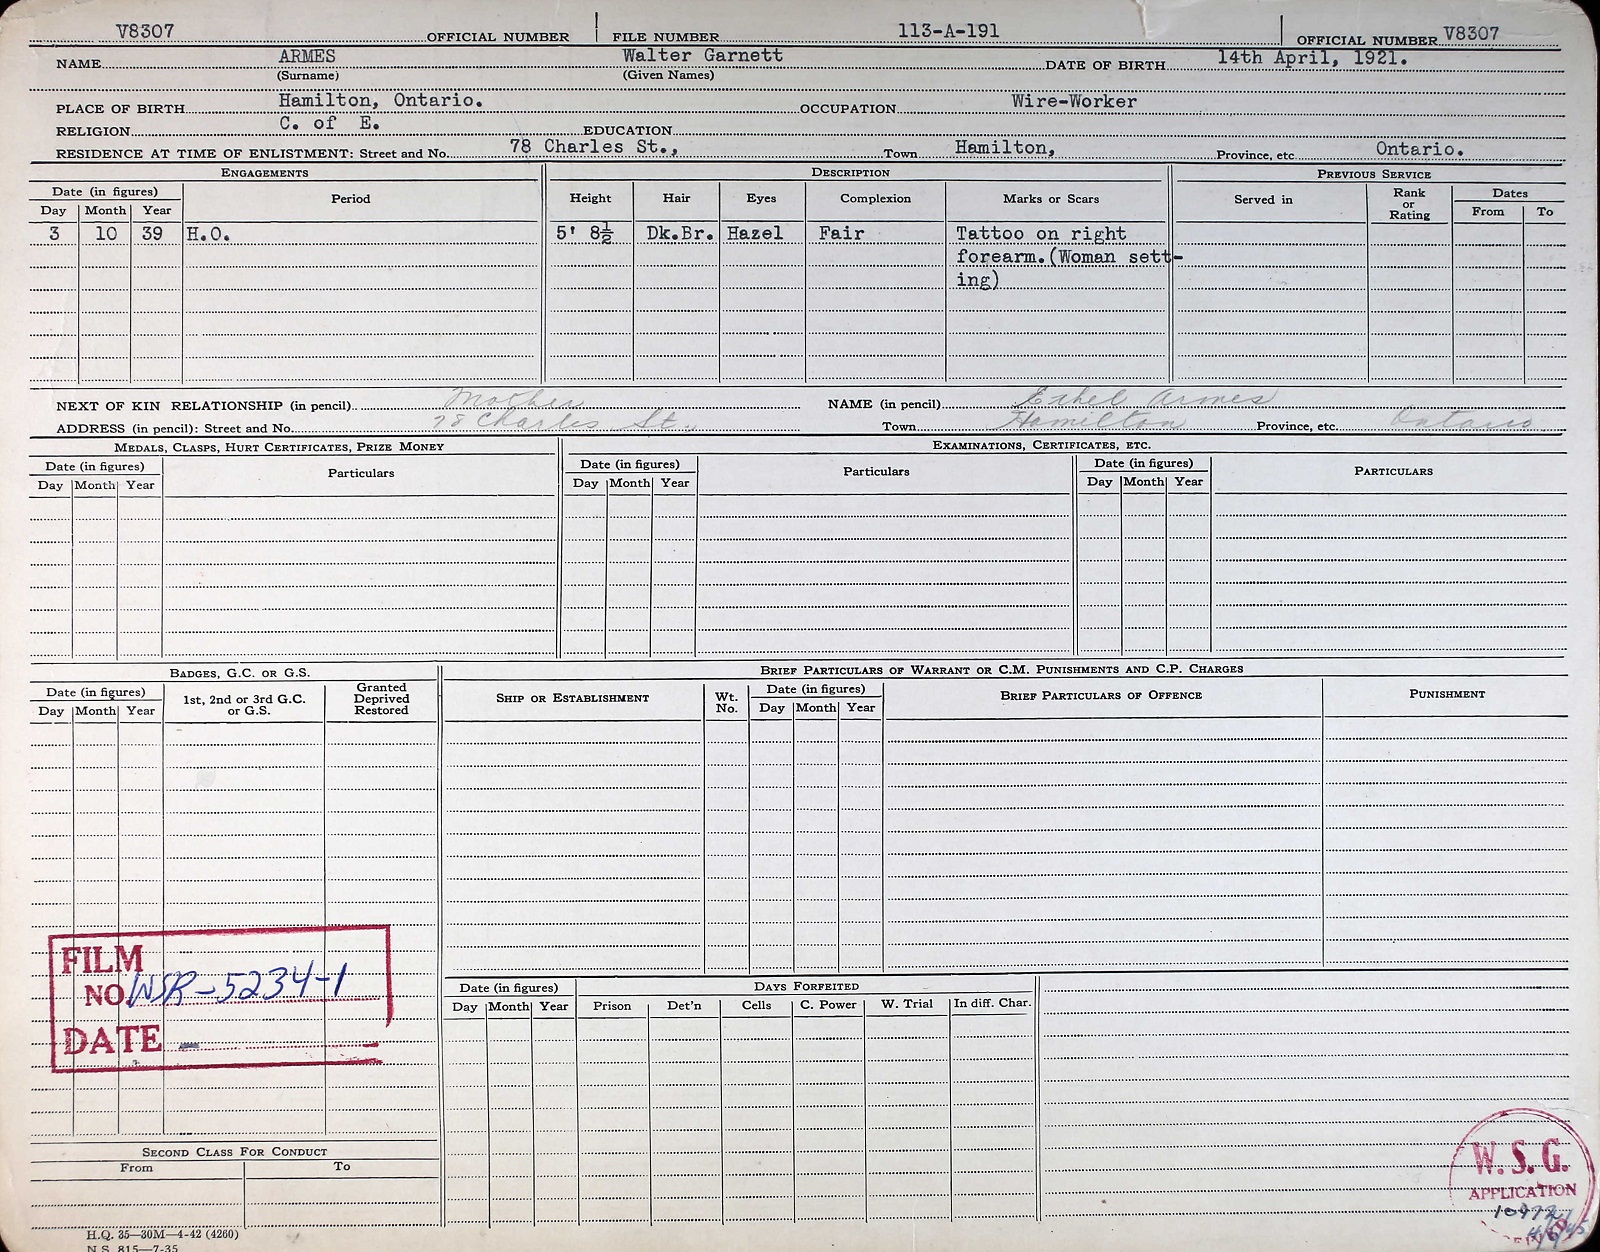 V8307 OFFICIAL NUMBER FILE NUMBER 113-A-191 OFFICIAL NUMBER V8307
NAME ARMES Walter Garnett DATE OF BIRTH 14th April, 1921.
(Surname) (Given Names)
PLACE OF BIRTH Hamilton, Ontario. OCCUPATION Wire-Worker
RELIGION C. of E. EDUCATION
RESIDENCE AT TIME OF ENLISTMENT: Street and No. 78 Charles St., Town Hamilton, Province, etc Ontario.
ENGAGEMENTS DESCRIPTION PREVIOUS SERVICE
Date (in figures) Period Height Hair Eyes Complexion Marks or Scars Served in Rank or Rating Dates
Day Month Year From To
3 10 39 H.O. 5' 8½ Dk.Br. Hazel Fair Tattoo on right
forearm.(Woman sett-
ing)
NEXT OF KIN RELATIONSHIP (in pencil) Mother NAME (in pencil) Ethel Armes
ADDRESS (in pencil): Street and No. 78 Charles St. Town Hamilton Province, etc. Ontario
MEDALS, CLASPS, HURT CERTIFICATES, PRIZE MONEY EXAMINATIONS, CERTIFICATES, ETC.
Date (in figures) Particulars Date (in figures) Particulars Date (in figures) PARTICULARS
Day Month Year Day Month Year Day Month Year
BADGES, G.C. OR G.S. BRIEF PARTICULARS OF WARRANT OR C.M. PUNISHMENTS AND C.P. CHARGES
Date (in figures) 1st, 2nd or 3rd G.C. or G.S. Granted Deprived Restored SHIP OR ESTABLISHMENT Wt. No. Date (in figures) BRIEF PARTICULARS OF OFFENCE PUNISHMENT
Day Month Year Day Month Year
FILM
NO. WSR-5234-1
DATE -
Date (in figures) DAYS FORFEITED
Day Month Year Prison Det'n Cells C. Power W. Trial In diff. Char.
SECOND CLASS FOR CONDUCT
From To
W.S.G.
APPLICATION
H.Q. 35—30M—4-42 (4260)
N.S. 815—7-35